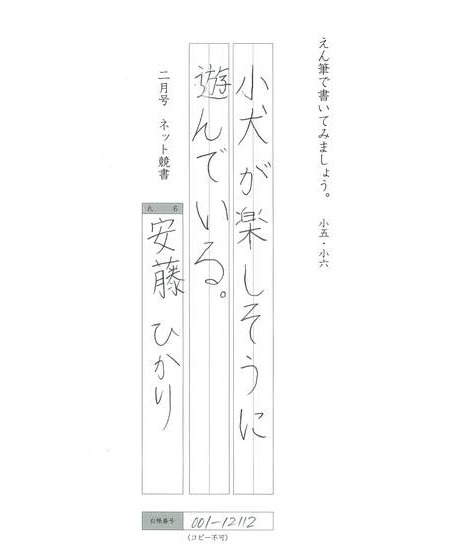 えん筆で書いてみましょう。 小五・小六
小犬が楽しそうに
遊んでいる。
二月号 ネット競書
氏 名
安藤 ひかり
会員番号 001-12112
(コピー不可)